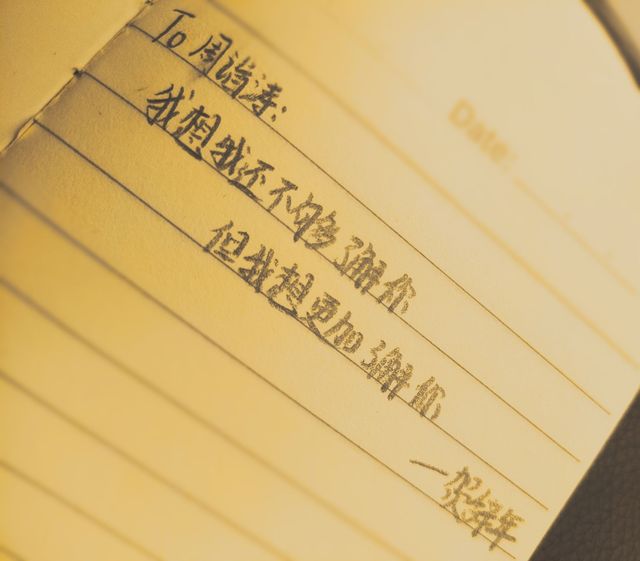 Date:
To 周
我想我还不够了解你
但我想更加了解你
一贺 年